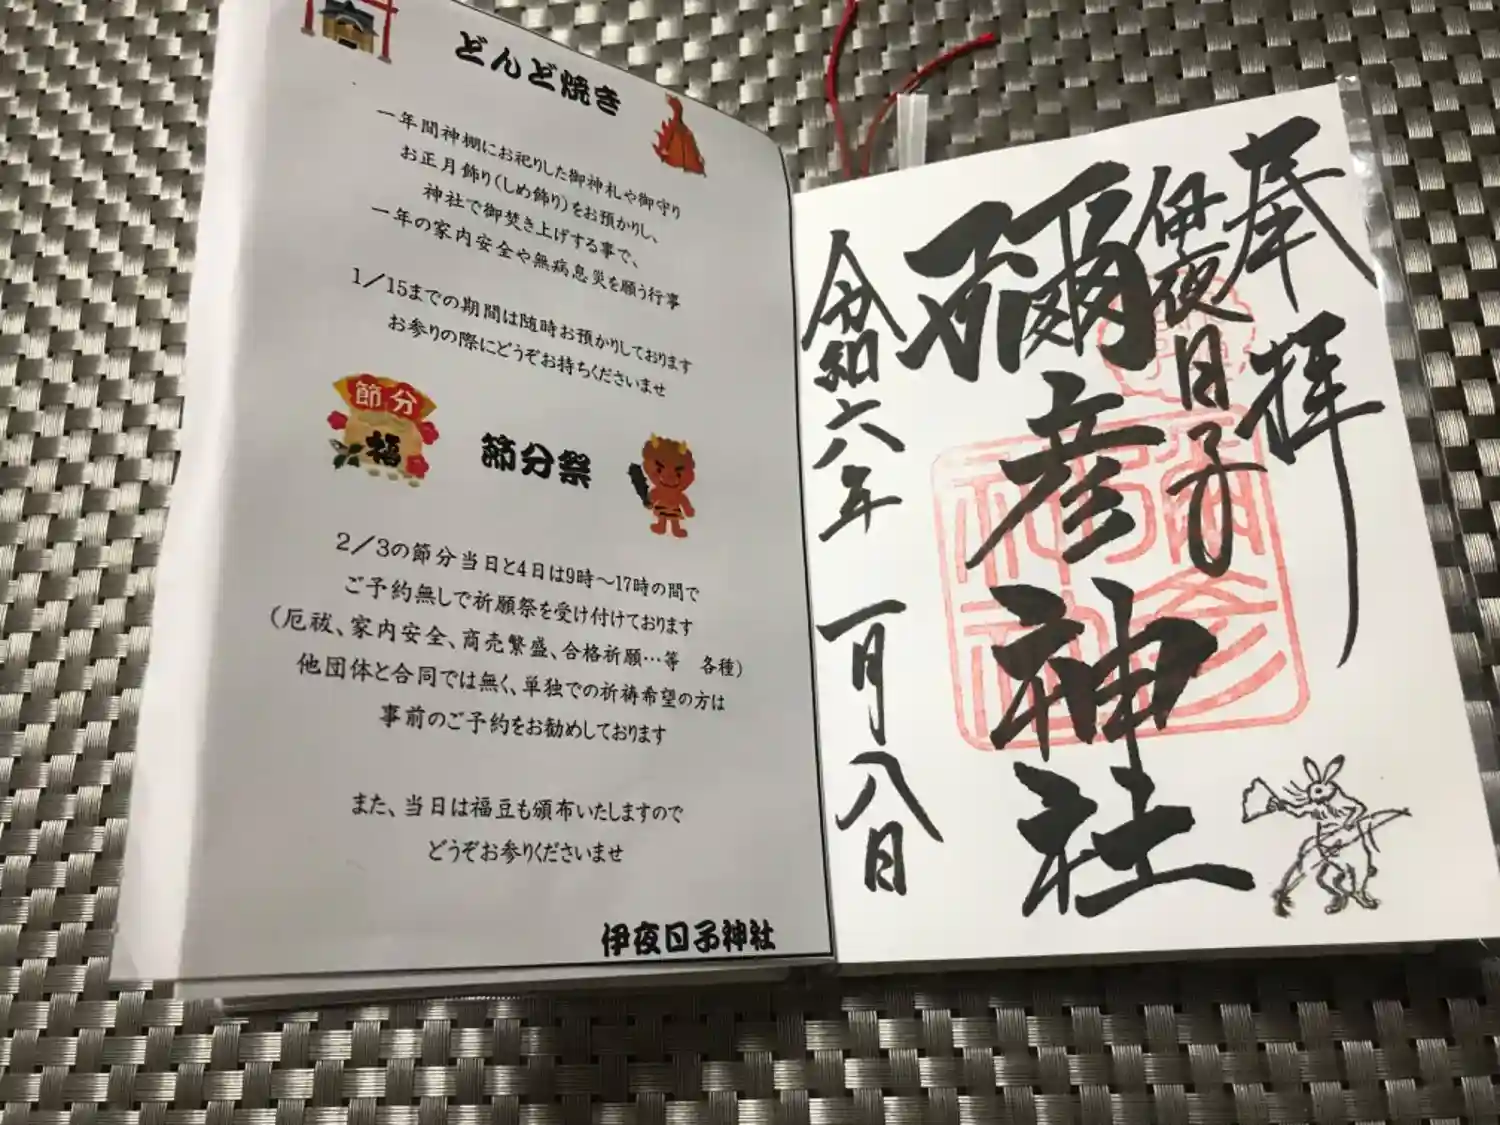 どんど焼き
一年間神棚にお祀りした御神札や御守り
お正月飾り(しめ飾り)をお預かりし、
神社で御焚き上げする事で、
一年の家内安全や無病息災を願う行事
1/15までの期間は随時お預かりしております
お参りの際にどうぞお持ちくださいませ
節分
福
節分祭
2/3の節分当日と4日は9時～17時の間で
ご予約無しで祈願祭を受け付けております
(厄祓、家内安全、商売繁盛、合格祈願…等　各種)
他団体と合同では無く、単独での祈祷希望の方は
事前のご予約をお勧めしております
また、当日は福豆も頒布いたしますので
どうぞお参りくださいませ
伊夜日子神社
奉拝
伊夜日子
彌彦神社
令和六年 一月八日